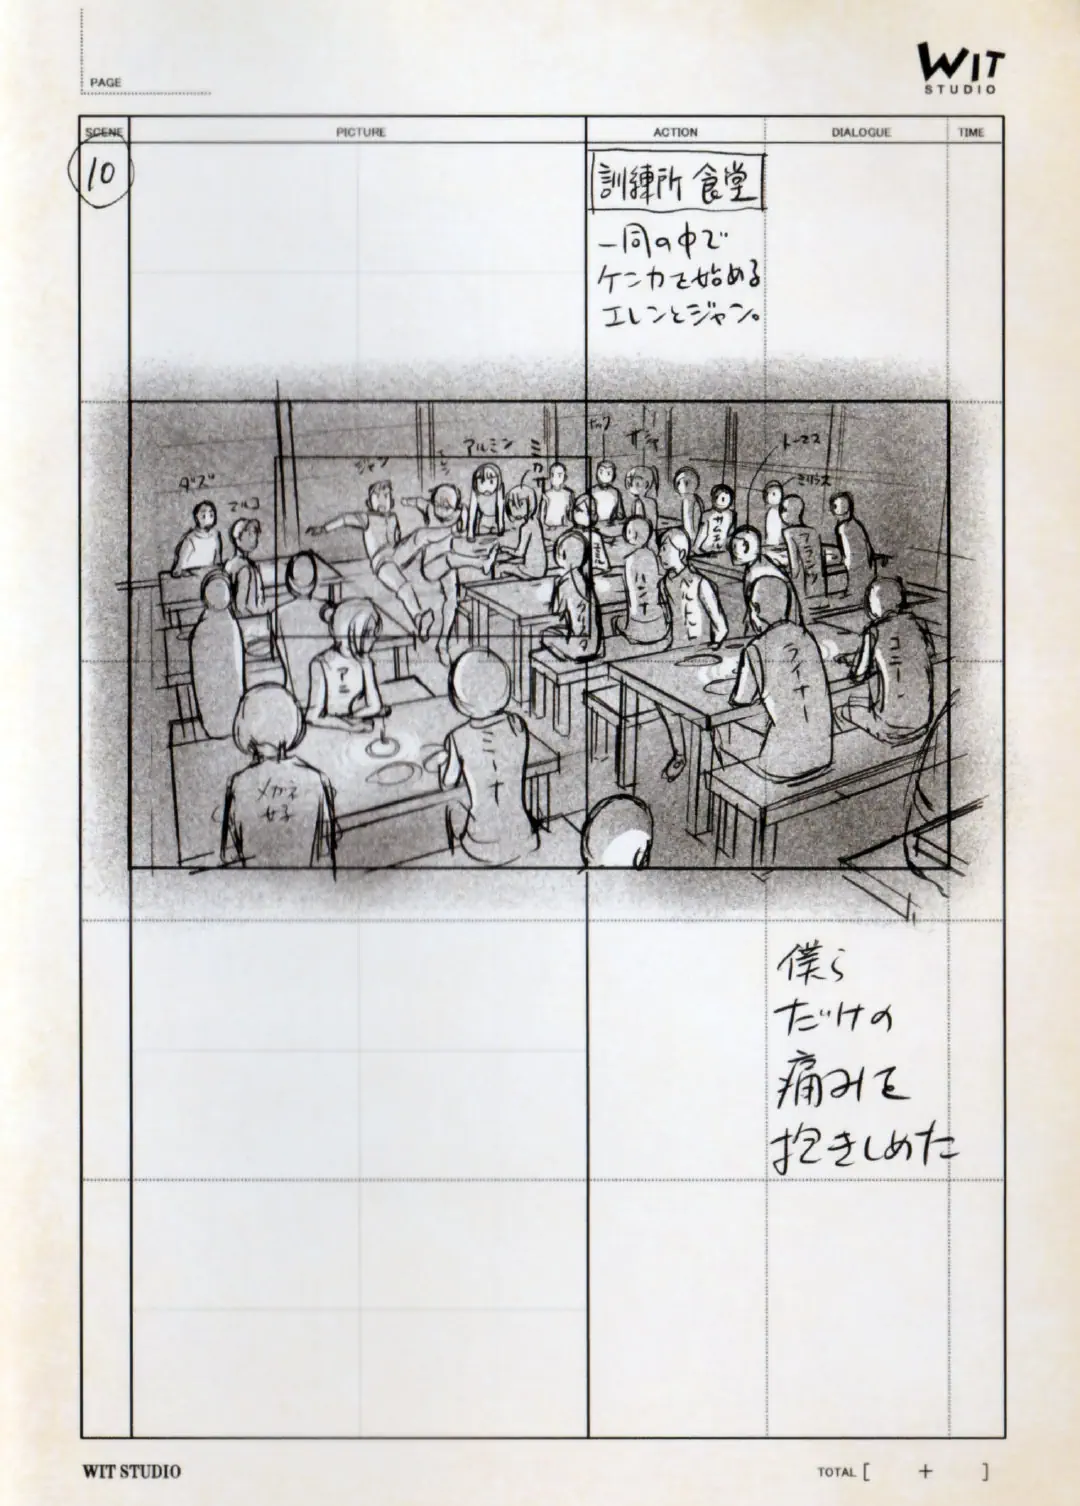 PAGE
WIT
STUDIO
SCENE
PICTURE
ACTION
DIALOGUE
TIME
10
訓練所 食堂
一同の中で
ケンカを始める
エレンとジャン。
ダズ
マルコ
ジャン
エレン
アルミン
ミカサ
サシャ
トーマス
ミリウス
サムエル
フランツ
ユミル
ハンナ
クリスタ
ベルト
ライナー
コニー
アニ
ミーナ
メガネ
女子
僕ら
だけの
痛みを
抱きしめた
WIT STUDIO
TOTAL [ + ]